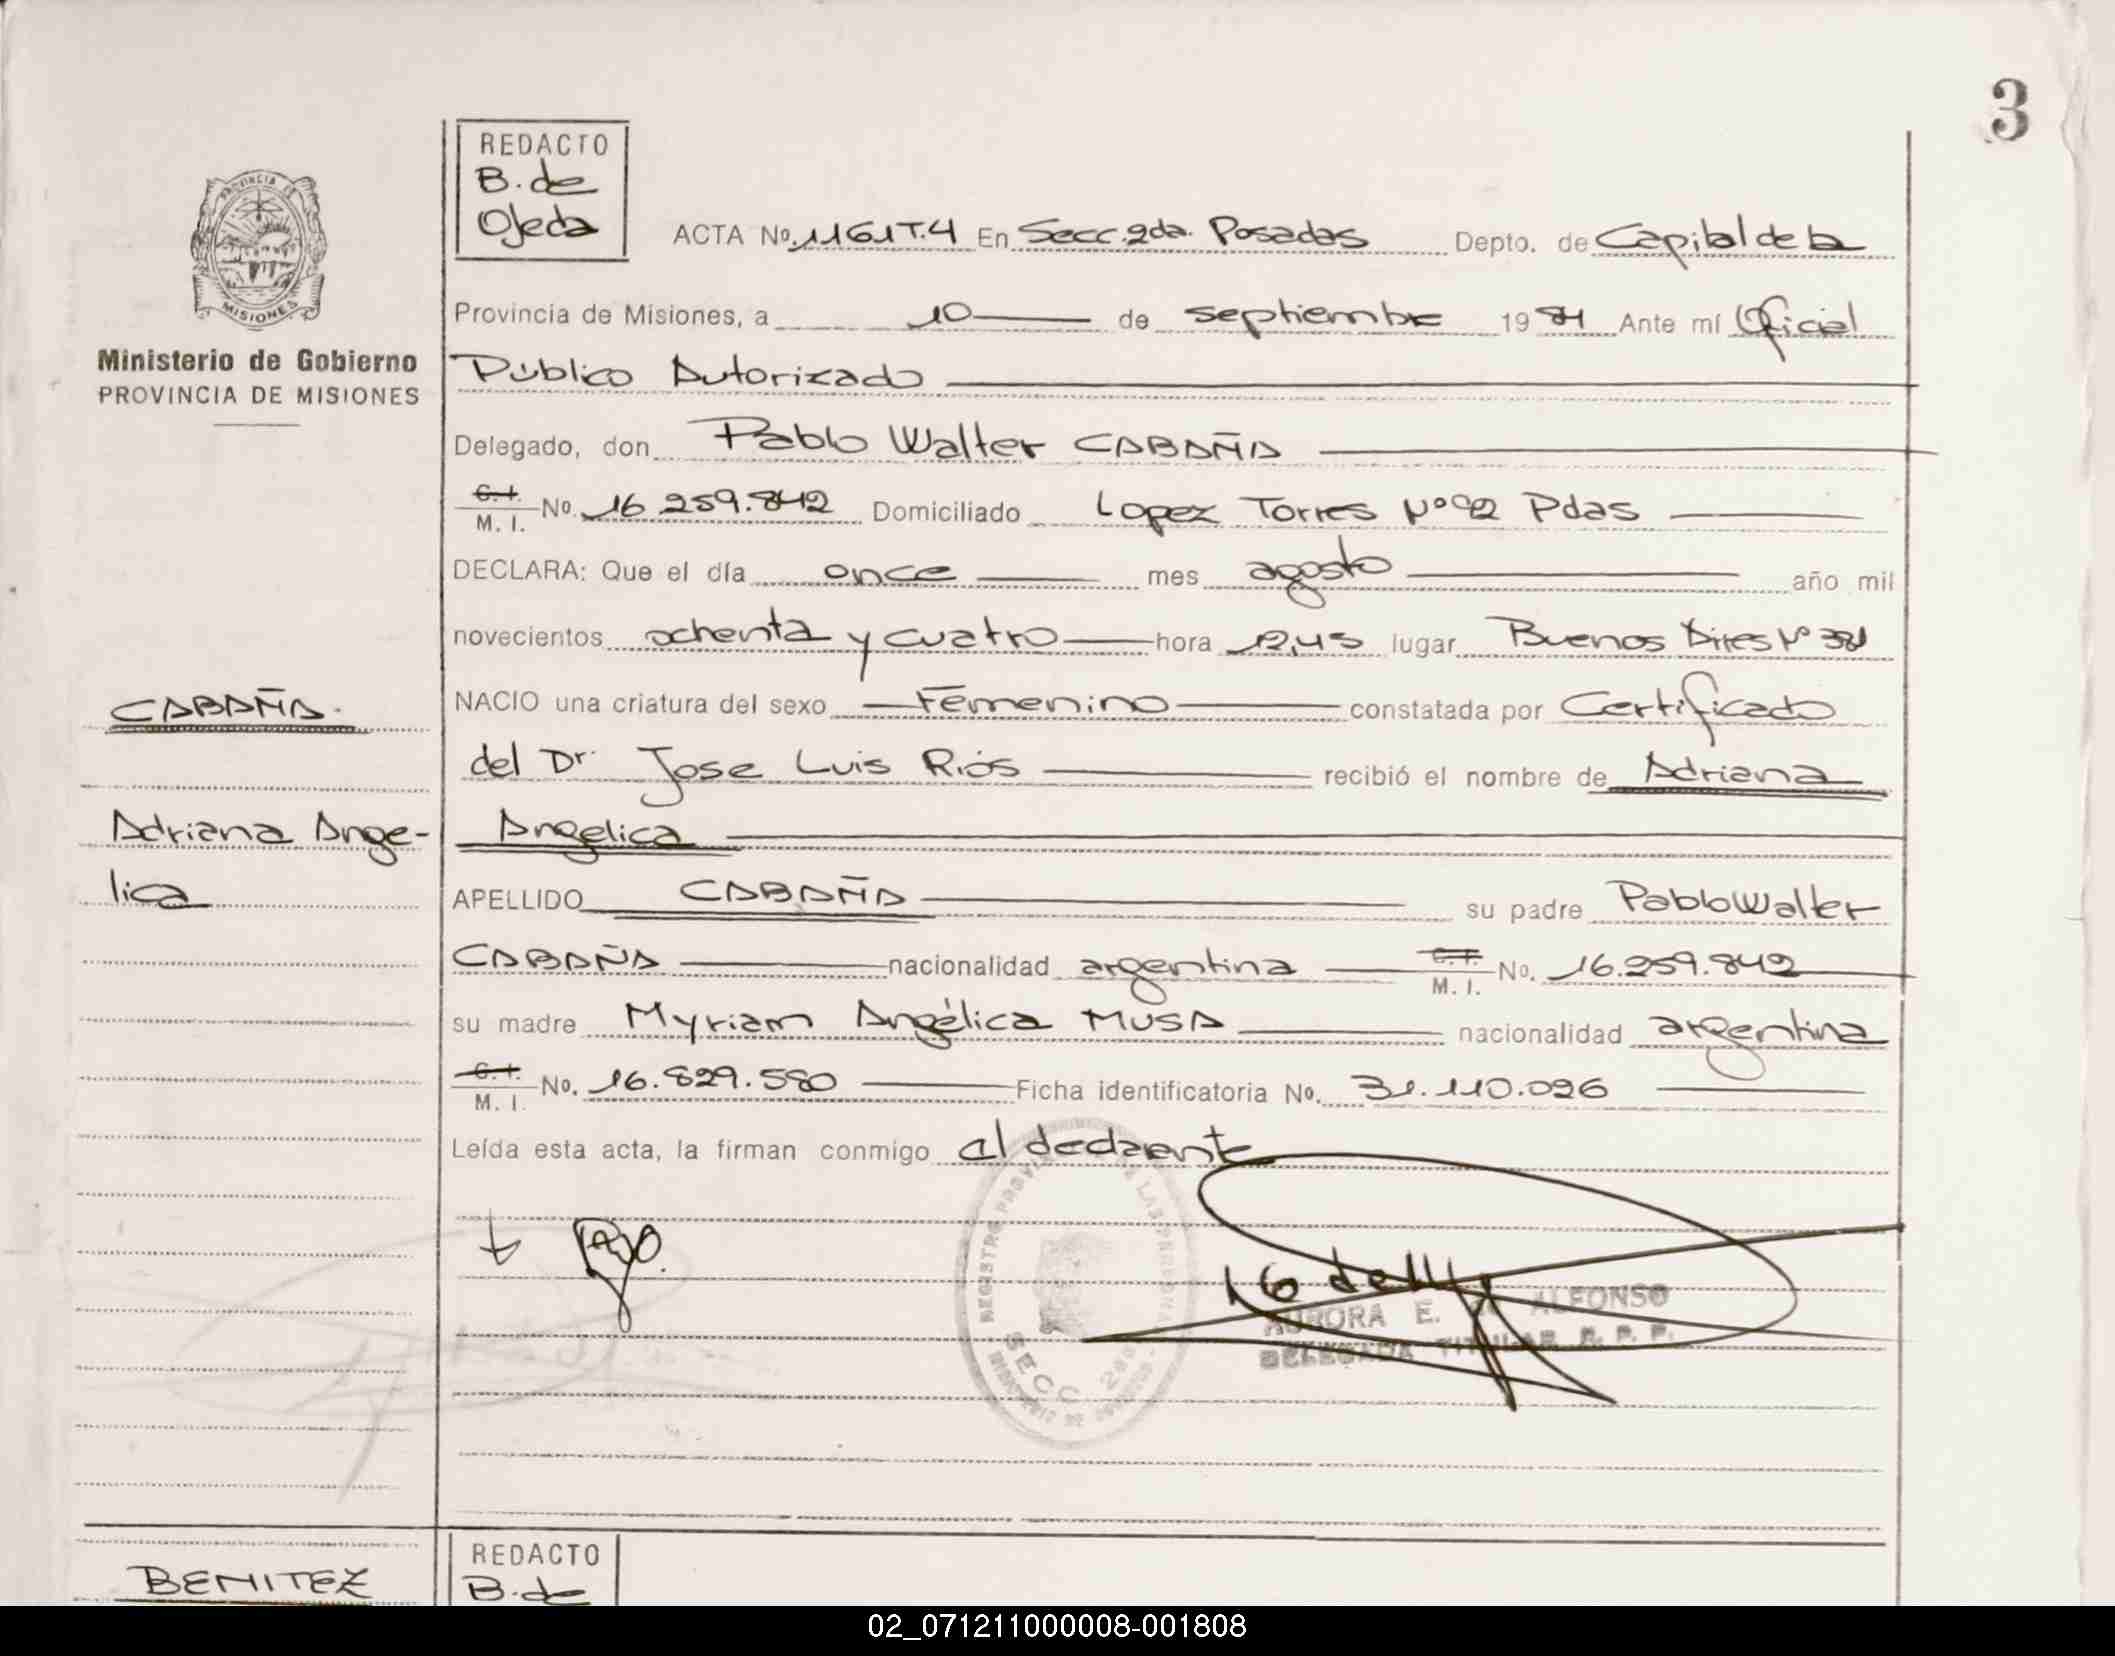 3
REDACTO
B. de
Ojeda
PROVINCIA DE
MISIONES
Ministerio de Gobierno
PROVINCIA DE MISIONES
ACTA Nº 1161 T.4 En Secc. 2da. Posadas Depto. de Capital de la
Provincia de Misiones, a 10 de septiembre 1984 Ante mí Oficial
Público Autorizado
Delegado, don Pablo Walter CABAÑA
C. I.
M. I. Nº 16.259.842 Domiciliado Lopez Torres Nº 92 Pdas
DECLARA: Que el día once mes agosto año mil
novecientos ochenta y cuatro hora 12,45 lugar Buenos Aires Nº
NACIO una criatura del sexo Femenino constatada por Certificado
del Dr. Jose Luis Riós recibió el nombre de Adriana
Angelica
CABAÑA.
Adriana Ange-
lica
APELLIDO CABAÑA su padre Pablo Walter
CABAÑA nacionalidad argentina C. I.
M. I. No. 16.259.842
su madre Myriam Angélica MUSA nacionalidad argentina
C. I.
M. I. No. 16.829.580 Ficha identificatoria No. 31.110.026
Leída esta acta, la firman conmigo al
AURORA E. DE ALFONSO
DELEGADA TITULAR R. P. P.
REGISTRO PROV LAS PERSONAS
SECC. 2da
BENITEZ
REDACTO
B. de
02_071211000008-001808